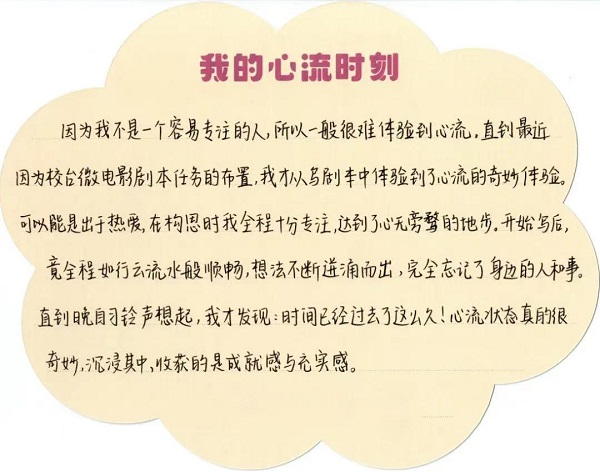 我的心流时刻
因为我不是一个容易专注的人,所以一般很难体验到心流,直到最近
因为校台微电影剧本任务的布置,我才从写剧本中体验到了心流的奇妙体验。
可以能是出于热爱,在构思时我全程十分专注,达到了心无旁骛的地步。开始写后,
竟全程如行云流水般顺畅,想法不断迸涌而出,完全忘记了身边的人和事。
直到晚自习铃声想起,我才发现:时间已经过去了这么久!心流状态真的很
奇妙,沉浸其中,收获的是成就感与充实感。